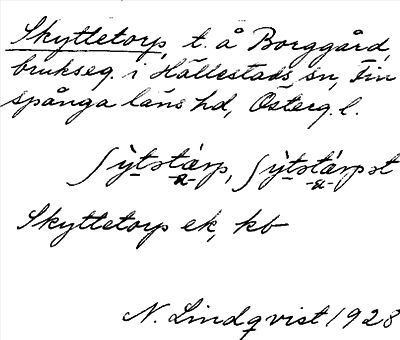 Skyttetorp, t. å Borggård,
brukseg. i Hällestads sn, Fin
spånga läns hd, Österg. l.
ʃỳtstárp, ʃỳtstárpst
Skyttetorp ek, kb
N. Lindqvist 1928